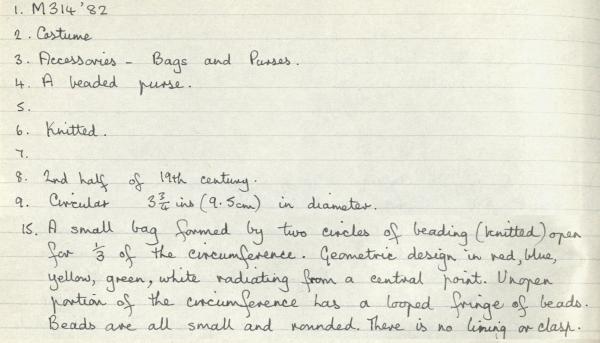 1. M314'82
2. Costume
3. Accessories - Bags and Purses.
4. A beaded purse.
5.
6. Knitted.
7.
8. 2nd half of 19th century.
9. Circular 3¾ ins (9.5cm) in diameter.
15. A small bag formed by two circles of beading (knitted) open
for ⅓ of the circumference. Geometric design in red, blue,
yellow, green, white radiating from a central point. Unopen
portion of the circumference has a looped fringe of beads.
Beads are all small and rounded. There is no lining or clasp.